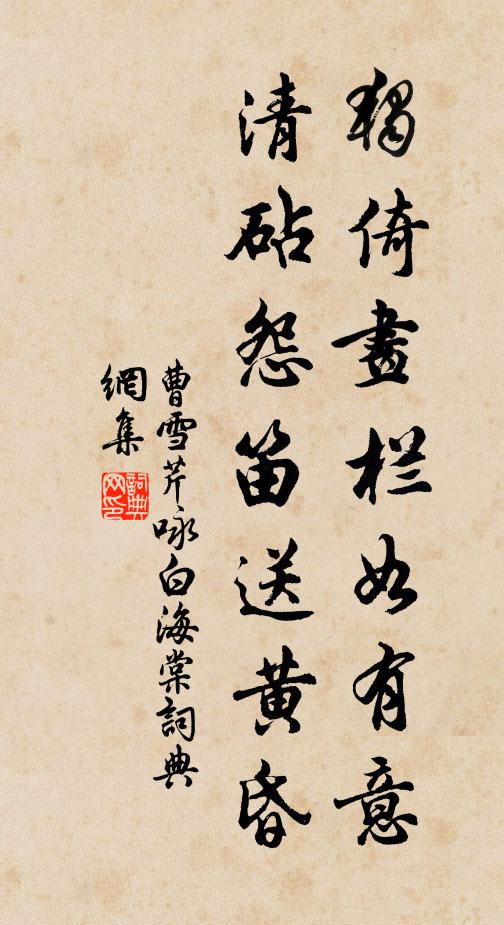 獨倚畫栏如有意
清砧怨笛送黄昏
曹雪芹咏白海棠詞典
網集
詞典
网印